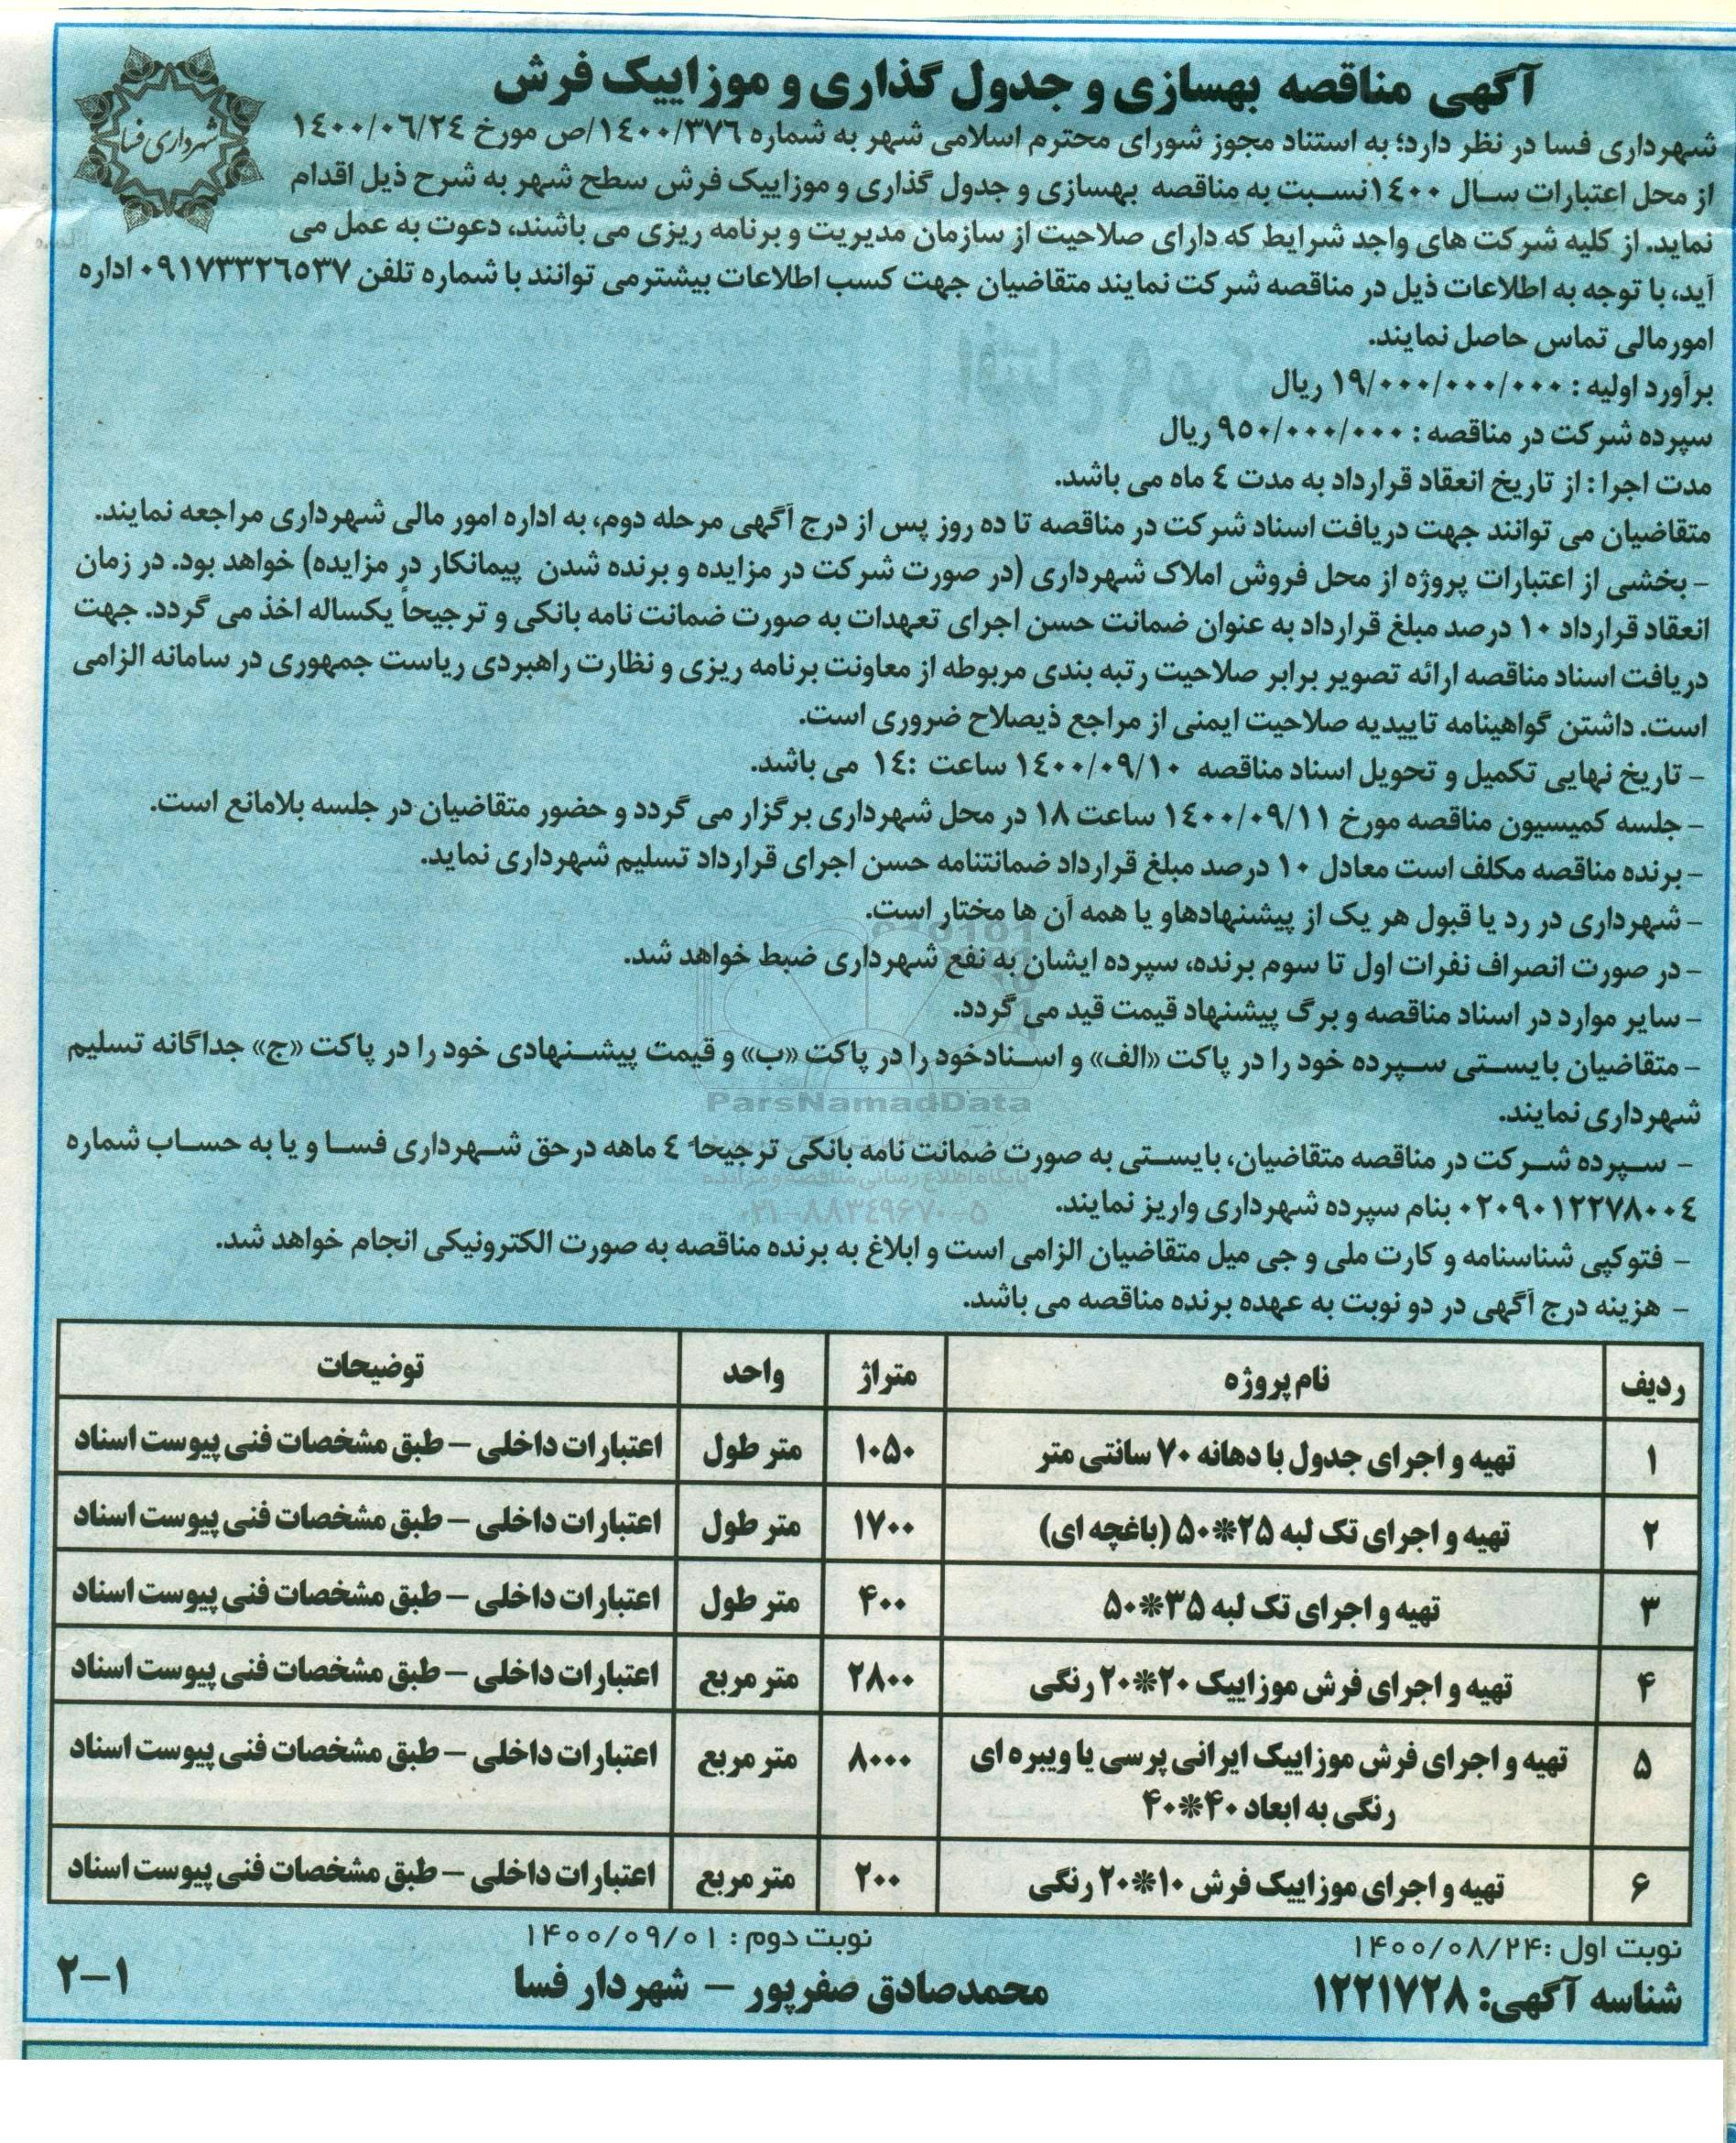 آگهی مناقصه بهسازی و جدول گذاری و موزاییک فرش
شهرداری فسا
شهرداری فسا در نظر دارد؛ به استناد مجوز شورای محترم اسلامی شهر به شماره ۱٤۰۰/۳۷٦/ص مورخ ۱٤۰۰/۰٦/۲٤
از محل اعتبارات سال ۱٤۰۰ نسبت به مناقصه بهسازی و جدول گذاری و موزاییک فرش سطح شهر به شرح ذیل اقدام
نماید. از کلیه شرکت های واجد شرایط که دارای صلاحیت از سازمان مدیریت و برنامه ریزی می باشند، دعوت به عمل می
آید، با توجه به اطلاعات ذیل در مناقصه شرکت نمایند متقاضیان جهت کسب اطلاعات بیشتر می توانند با شماره تلفن ۰۹۱۷۳۳۲٦٥۳۷ اداره
امور مالی تماس حاصل نمایند.
برآورد اولیه : ۱۹/۰۰۰/۰۰۰/۰۰۰ ریال
سپرده شرکت در مناقصه : ۹٥۰/۰۰۰/۰۰۰ ریال
مدت اجرا : از تاریخ انعقاد قرارداد به مدت ٤ ماه می باشد.
متقاضیان می توانند جهت دریافت اسناد شرکت در مناقصه تا ده روز پس از درج آگهی مرحله دوم، به اداره امور مالی شهرداری مراجعه نمایند.
- بخشی از اعتبارات پروژه از محل فروش املاک شهرداری (در صورت شرکت در مزایده و برنده شدن پیمانکار در مزایده) خواهد بود. در زمان
انعقاد قرارداد ۱۰ درصد مبلغ قرارداد به عنوان ضمانت حسن اجرای تعهدات به صورت ضمانت نامه بانکی و ترجیحاً یکساله اخذ می گردد. جهت
دریافت اسناد مناقصه ارائه تصویر برابر صلاحیت رتبه بندی مربوطه از معاونت برنامه ریزی و نظارت راهبردی ریاست جمهوری در سامانه الزامی
است. داشتن گواهینامه تاییدیه صلاحیت ایمنی از مراجع ذیصلاح ضروری است.
- تاریخ نهایی تکمیل و تحویل اسناد مناقصه ۱٤۰۰/۰۹/۱۰ ساعت :۱٤ می باشد.
- جلسه کمیسیون مناقصه مورخ ۱٤۰۰/۰۹/۱۱ ساعت ۱۸ در محل شهرداری برگزار می گردد و حضور متقاضیان در جلسه بلامانع است.
- برنده مناقصه مکلف است معادل ۱۰ درصد مبلغ قرارداد ضمانتنامه حسن اجرای قرارداد تسلیم شهرداری نماید.
- شهرداری در رد یا قبول هر یک از پیشنهادهاو یا همه آن ها مختار است.
- در صورت انصراف نفرات اول تا سوم برنده، سپرده ایشان به نفع شهرداری ضبط خواهد شد.
- سایر موارد در اسناد مناقصه و برگ پیشنهاد قیمت قید می گردد.
- متقاضیان بایستی سپرده خود را در پاکت «الف» و اسناد خود را در پاکت «ب» و قیمت پیشنهادی خود را در پاکت «ج» جداگانه تسلیم
شهرداری نمایند.
- سپرده شرکت در مناقصه متقاضیان، بایستی به صورت ضمانت نامه بانکی ترجیحا ٤ ماهه در حق شهرداری فسا و یا به حساب شماره
۰۲۰۹۰۱۲۲۷۸۰۰٤ بنام سپرده شهرداری واریز نمایند.
- فتوکپی شناسنامه و کارت ملی و جی میل متقاضیان الزامی است و ابلاغ به برنده مناقصه به صورت الکترونیکی انجام خواهد شد.
- هزینه درج آگهی در دو نوبت به عهده برنده مناقصه می باشد.
ParsNamadData
پایگاه اطلاع رسانی مناقصه و مزایده
۰۲۱-۸۸۳۴۹۶۷۰-۵
ردیف نام پروژه متراژ واحد توضیحات
۱ تهیه و اجرای جدول با دهانه ۷۰ سانتی متر ۱۰۵۰ متر طول اعتبارات داخلی – طبق مشخصات فنی پیوست اسناد
۲ تهیه و اجرای تک لبه ۲۵*۵۰ (باغچه ای) ۱۷۰۰ متر طول اعتبارات داخلی – طبق مشخصات فنی پیوست اسناد
۳ تهیه و اجرای تک لبه ۳۵*۵۰ ۴۰۰ متر طول اعتبارات داخلی – طبق مشخصات فنی پیوست اسناد
۴ تهیه و اجرای فرش موزاییک ۲۰*۲۰ رنگی ۲۸۰۰ متر مربع اعتبارات داخلی – طبق مشخصات فنی پیوست اسناد
۵ تهیه و اجرای فرش موزاییک ایرانی پرسی یا ویبره ای ۸۰۰۰ متر مربع اعتبارات داخلی – طبق مشخصات فنی پیوست اسناد
رنگی به ابعاد ۴۰*۴۰
۶ تهیه و اجرای موزاییک فرش ۱۰*۲۰ رنگی ۲۰۰ متر مربع اعتبارات داخلی – طبق مشخصات فنی پیوست اسناد
نوبت اول :۱۴۰۰/۰۸/۲۴ نوبت دوم : ۱۴۰۰/۰۹/۰۱
شناسه آگهی: ۱۲۲۱۷۲۸ محمدصادق صفرپور – شهردار فسا ۲-۱